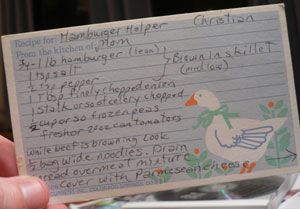 Recipe for: Hamburger Helper Christian
From the kitchen of Mom
3/4-1 lb hamburger (lean)
1 tsp salt
1/2 tsp pepper
Brown in skillet
(med low)
1 Tbs finely chopped onion
1 stalk or so of celery chopped
1/2 cup or so frozen peas
fresh or 20 oz can tomatoes
while beef is browning cook
1/2 bag wide noodles. Drain
spread over meat mixture
cover with Parmesean cheese